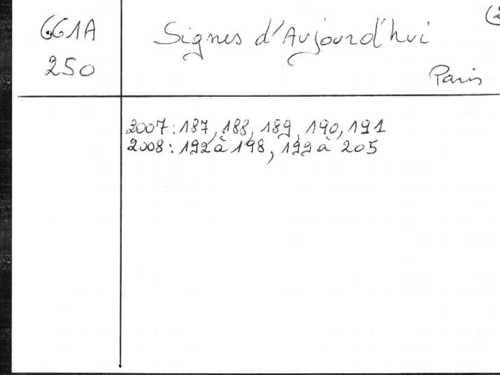 661A
250
Signes d'Aujourd'hui
(2
Paris
2007 : 187, 188, 189, 190, 191
2008 : 192 à 198, 199 à 205